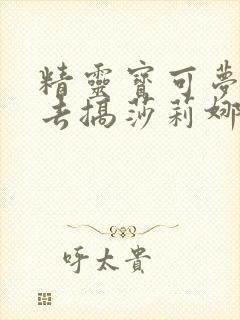 精靈寶可夢
去搞莎莉娜
呼太貴